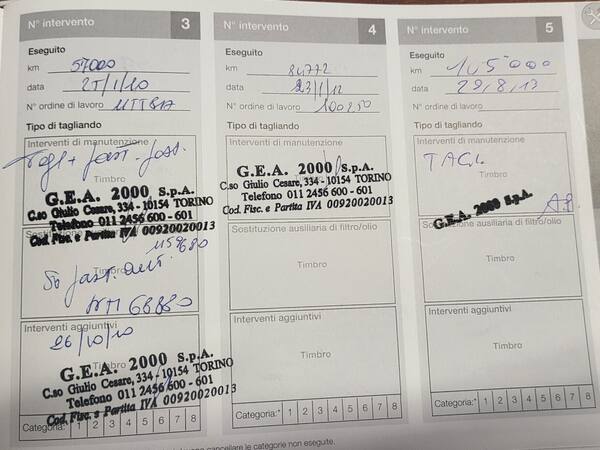 N° intervento 3
Eseguito
km 57000
data 25/1/10
N° ordine di lavoro
Tipo di tagliando
Interventi di manutenzione
G.E.A. 2000 S.p.A.
C.so Giulio Cesare, 334 - 10154 TORINO
Telefono 011 2456 600 - 601
Cod. Fisc. e Partita IVA 00920020013
Timbro
Interventi aggiuntivi
26/10/10
Timbro
G.E.A. 2000 S.p.A.
C.so Giulio Cesare, 334 - 10154 TORINO
Telefono 011 2456 600 - 601
Cod. Fisc. e Partita IVA 00920020013
Categoria:* 1 2 3 4 5 6 7 8
N° intervento 4
Eseguito
km 84772
data 23/1/12
N° ordine di lavoro 100250
Tipo di tagliando
Interventi di manutenzione
G.E.A. 2000 S.p.A.
C.so Giulio Cesare, 334 - 10154 TORINO
Telefono 011 2456 600 - 601
Cod. Fisc. e Partita IVA 00920020013
Sostituzione ausiliaria di filtro/olio
Timbro
Interventi aggiuntivi
Timbro
Categoria:* 1 2 3 4 5 6 7 8
N° intervento 5
Eseguito
km 105000
data 29,8,13
N° ordine di lavoro
Tipo di tagliando
Interventi di manutenzione
TAGL.
Timbro
G.E.A. 2000 S.p.A.
Sostituzione ausiliaria di filtro/olio
Timbro
Interventi aggiuntivi
Timbro
Categoria:* 1 2 3 4 5 6 7 8
cancellare le categorie non eseguite.